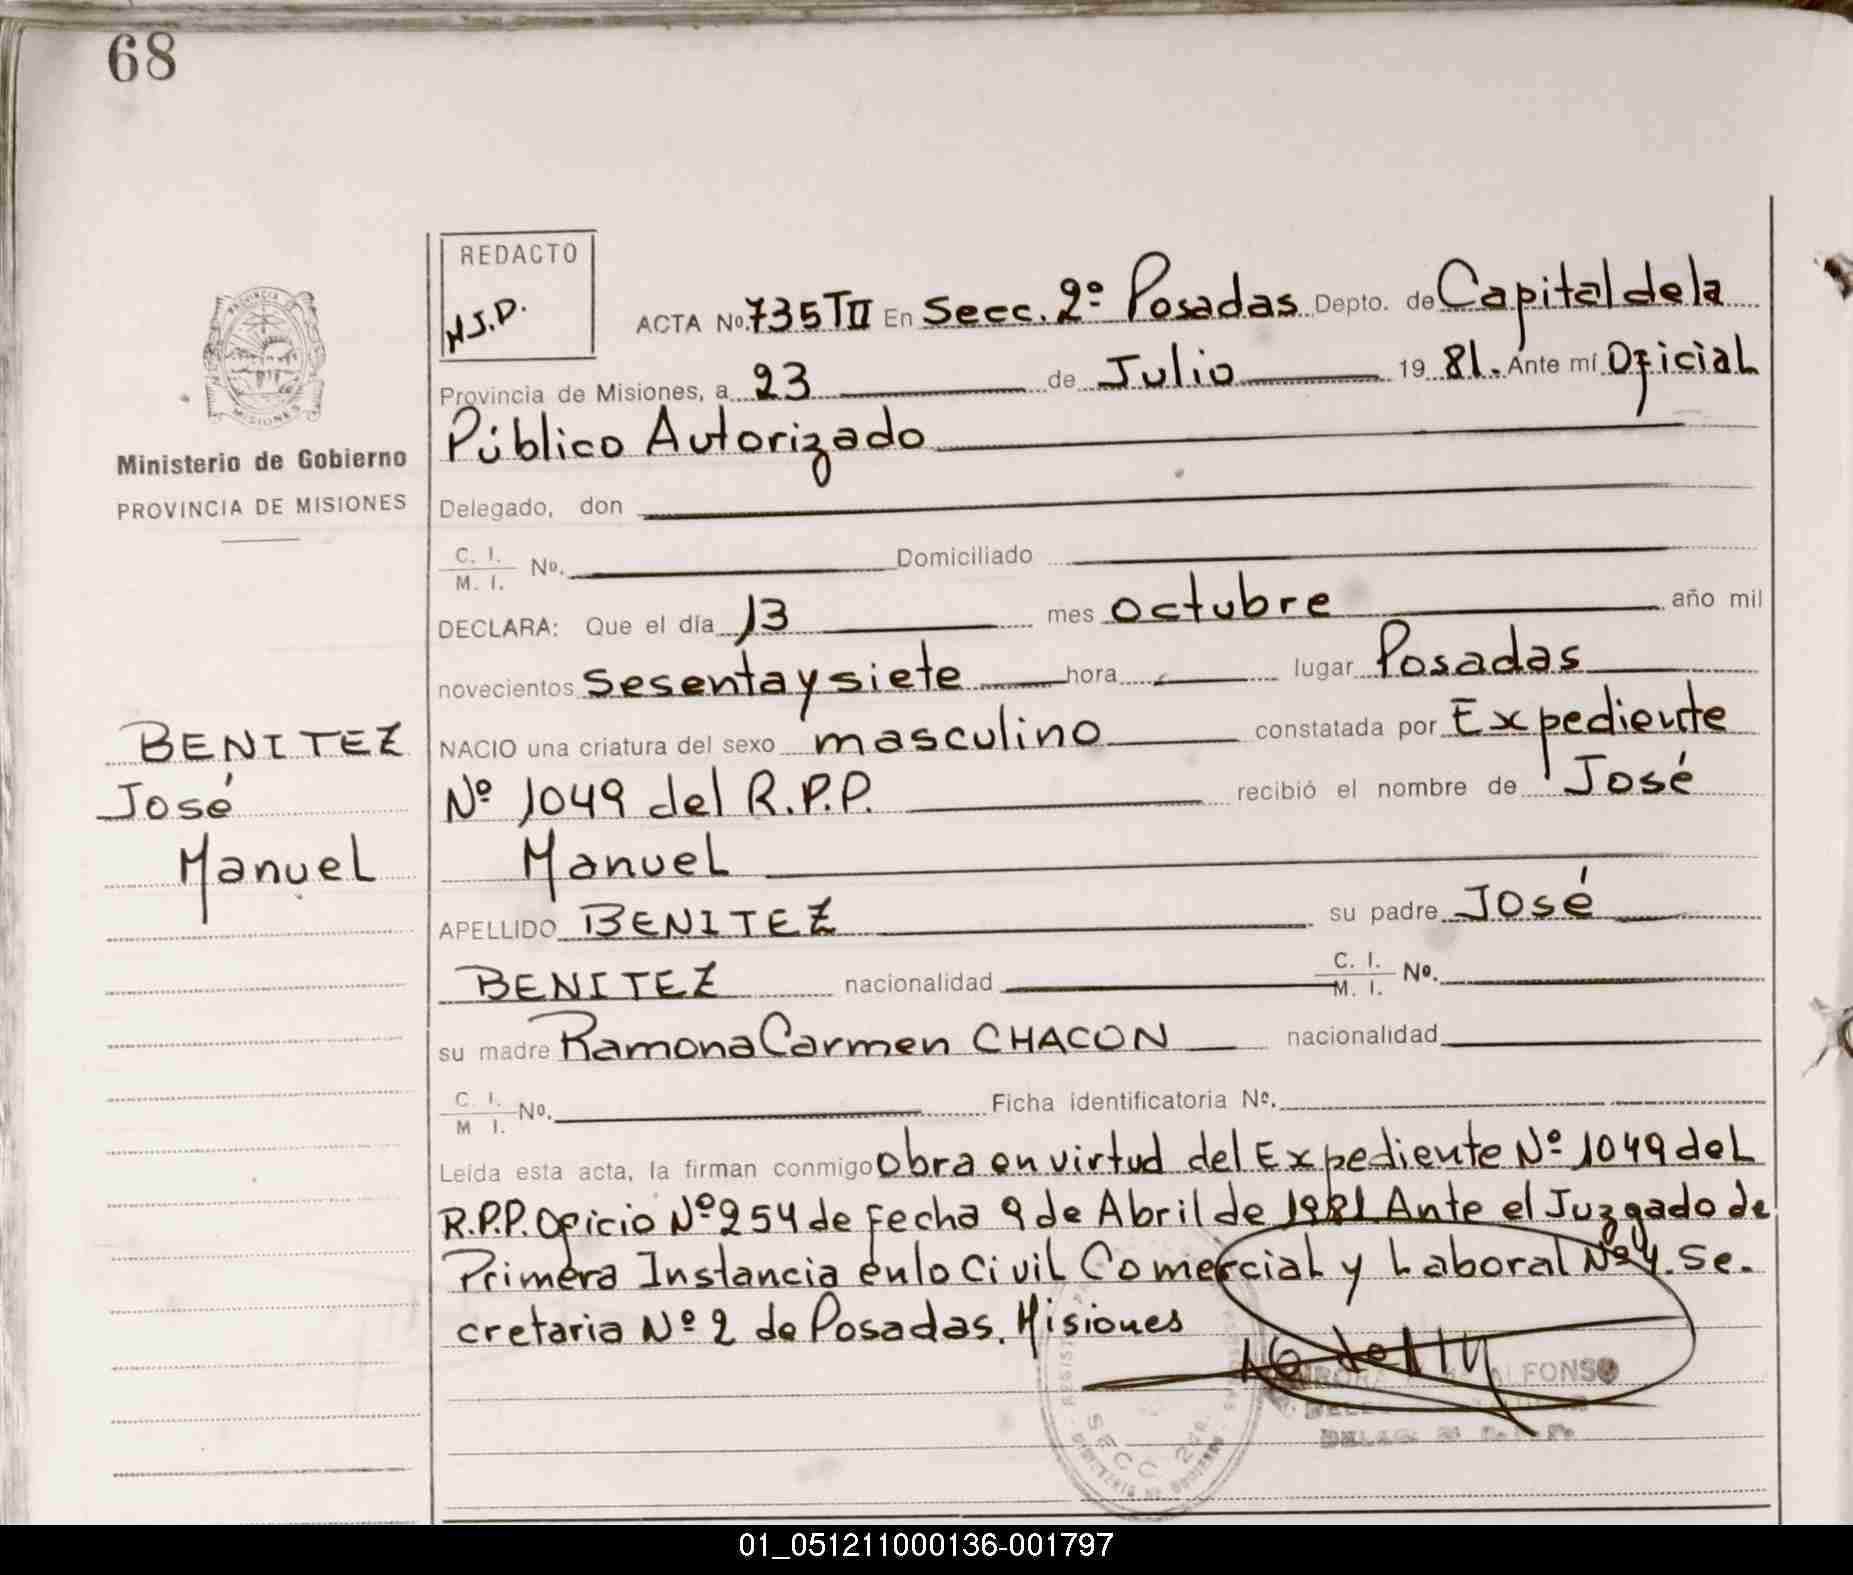 68
REDACTO
H.J.D.
ACTA No. 735 T II En Secc. 2º Posadas Depto. de Capital de la
Provincia de Misiones, a 23 de Julio 1981. Ante mí Oficial
Público Autorizado
Delegado, don
C. I. / M. I. No. Domiciliado
DECLARA: Que el día 13 mes octubre año mil
novecientos sesenta y siete hora lugar Posadas
NACIO una criatura del sexo masculino constatada por Expediente
Nº 1049 del R.P.P. recibió el nombre de José
Manuel
APELLIDO BENITEZ su padre José
BENITEZ nacionalidad C. I. / M. I. No.
su madre Ramona Carmen CHACON nacionalidad
C. I. / M I. No. Ficha identificatoria Nº.
Leída esta acta, la firman conmigo obra en virtud del Expediente Nº 1049 del
R.P.P. Oficio Nº 254 de fecha 9 de Abril de 1981 Ante el Juzgado de
Primera Instancia en lo Civil Comercial y Laboral Nº 4. Se-
cretaria Nº 2 de Posadas. Misiones
ALFONSO
SECC 2
PROVINCIA DE
MISIONES
Ministerio de Gobierno
PROVINCIA DE MISIONES
BENITEZ
José
Manuel
01_051211000136-001797